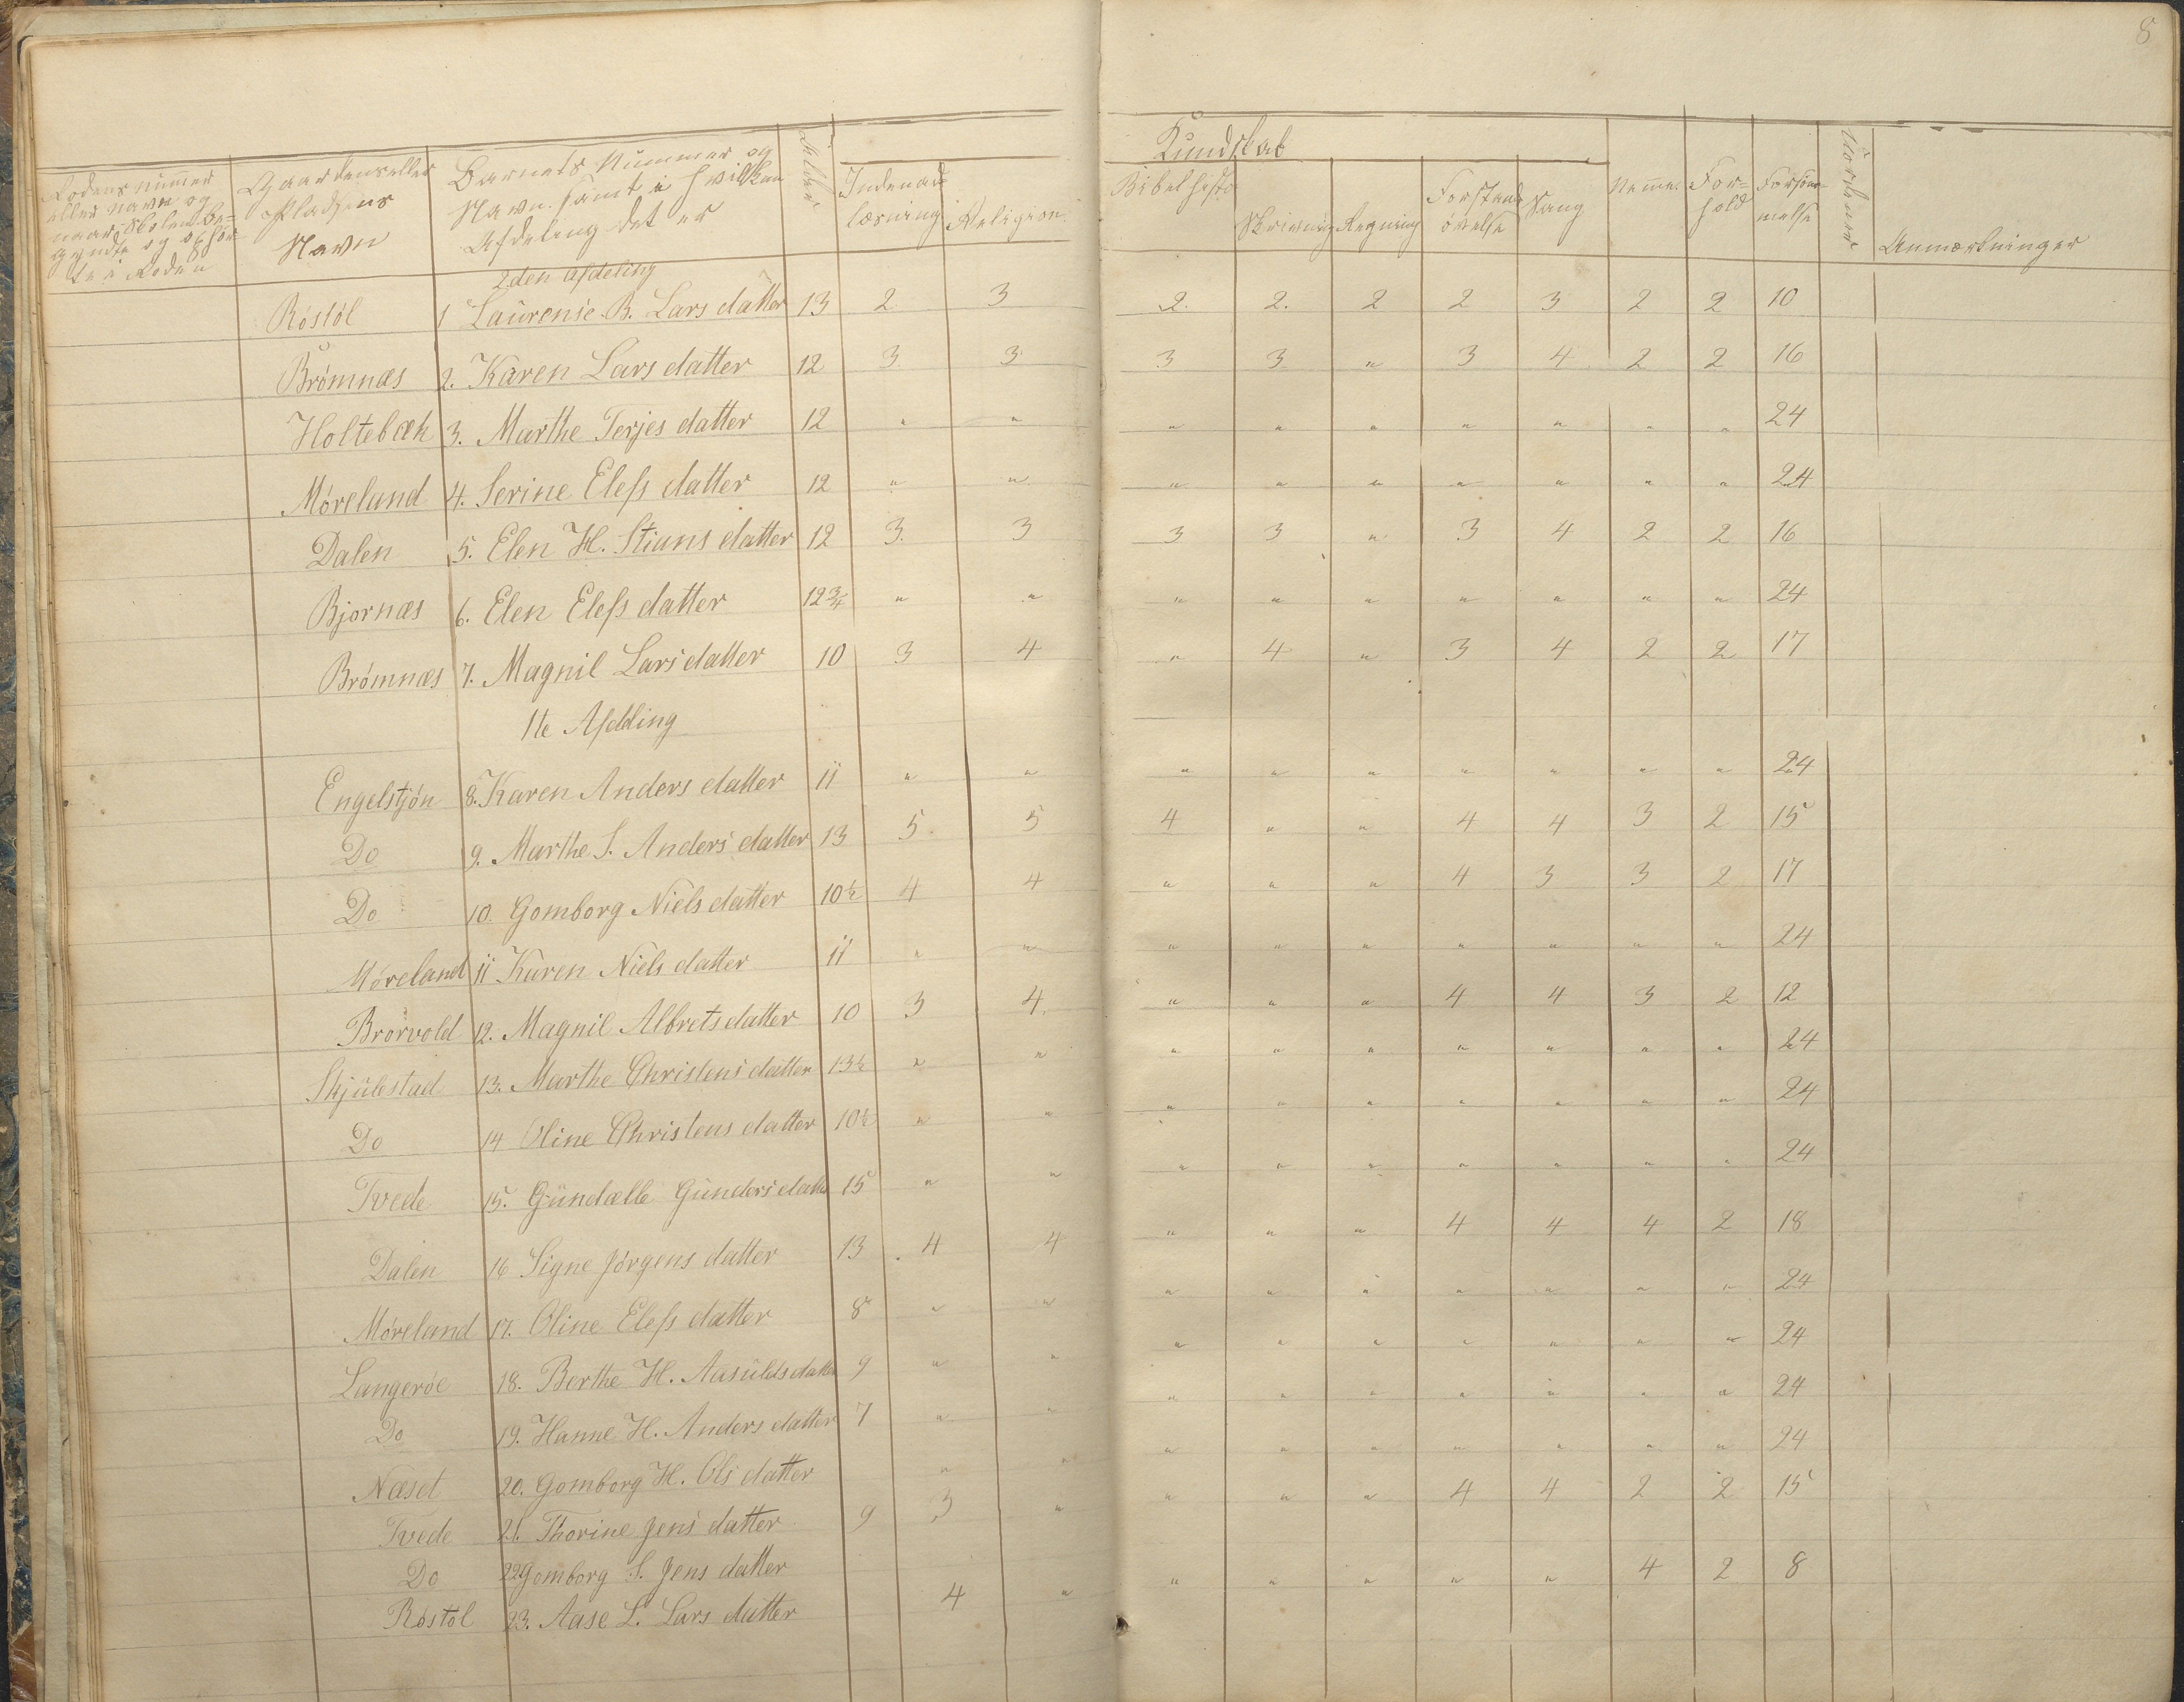 8
Rodens nummer
eller Navn og
naar Skolen be-
gyndte og ophør-
te i Roden
Gaardens eller
Pladsens
Navn
Barnets Nummer og
Navn samt i hvilken
Afdeling det er
Alder
Indenad-
læsning
Religion
Kundskab
Bibelhisto
Skrivning
Regning
Forstands
øvelse
Sang
Nemme
For-
hold
Forsøm-
melse
Anmærkninger
2den Afdeling
Röstöl 1 Laurensie B. Lars datter 13 2 3 2. 2. 2 2 3 2 2 10
Brömnæs 2. Karen Lars datter 12 3. 3 3 3 " 3 4 2 2 16
Holtebæk 3. Marthe Terjes datter 12 " " " " " " " " " 24
Möreland 4. Serine Elefs datter 12 " " " " " " " " " 24
Dalen 5. Elen H. Stians datter 12 3. 3 3 3 " 3 4 2 2 16
Bjornæs 6. Elen Elefs datter 12¾ " " " " " " " " " 24
Brömnæs 7. Magnil Lars datter 10 3 4 " 4 " 3 4 2 2 17
1te Afdeling
Engelstjön 8. Karen Anders datter 11 " " " " " " " " " 24
Do 9. Marthe S. Anders datter 13 5. 5 4 " " 4 4 3 2 15
Do 10. Gomborg Niels datter 10½ 4 4 " " " 4 3 3 2 17
Möreland 11 Karen Niels datter 11 " " " " " " " " " 24
Brorvold 12. Magnil Albrets datter 10 3 4. " " " 4 4 3 2 12
Skjulestad 13. Marthe Christens datter 13½ " " " " " " " " " 24
Do 14 Oline Christens datter 10½ " " " " " " " " " 24
Tvede 15. Gundælle Gunders datter 15 " " " " " " " " " 24
Dalen 16 Signe Jörgens datter 13 4 4 " " " 4 4 4 2 18
Möreland 17. Oline Elefs datter 8 " " " " " " " " " 24
Langeröe 18. Berthe H. Aasulds datter 9 " " " " " " " " " 24
Do 19. Hanne H. Anders datter 7 " " " " " " " " " 24
Næset 20. Gomborg H. Ols datter " " " " " " " " " 24
Tvede 21. Thorine Jens datter 9 3 " " " " 4 4 2 2 15
Do 22 Gomborg S. Jens datter
Röstöl 23. Aase L. Lars datter 4 " " " " " " 4 2 8